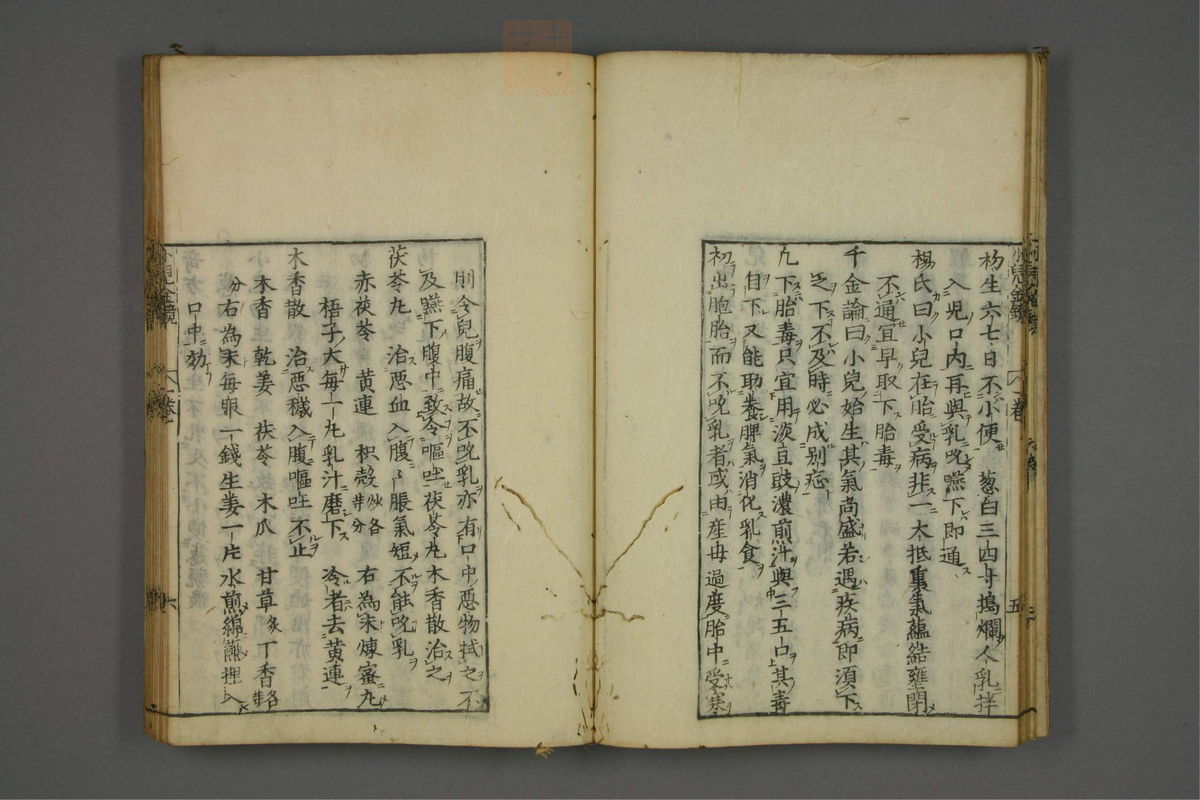 初生六七日不小便 葱白三四寸搗爛人乳拌
入児口内再與乳吮嚥下即通
楊氏曰小兒在胎受病非一大抵熏氣蘊結壅閉
不通宜早取下胎毒
千金論曰小兒始生其氣尚盛若遇疾病即須下
之下不及時必成別
凡下胎毒只宜用淡豆豉濃煎汁與三五口其毒
自下又能助養脾氣消化乳食
初出胞胎而不吮乳者或由産母過度胎中受寒
小兒金鏡 卷 五
則令兒腹痛故不吮乳亦有口中惡物拭之不
及嚥下腹中致令嘔吐茯苓丸木香散治之
茯苓丸 治惡血入腹腹脹氣短不能吮乳
赤茯苓 黄連 枳殻炒各等分 右為末煉蜜丸
梧子大每一丸乳汁磨下 冷者去黄連
木香散 治惡穢入腹嘔吐不止
木香 乾姜 茯苓 木瓜 甘草炙 丁香各等
分右為末每服一錢生姜一片水煎綿蘸捏入
口中効
小兒金鏡 卷 六